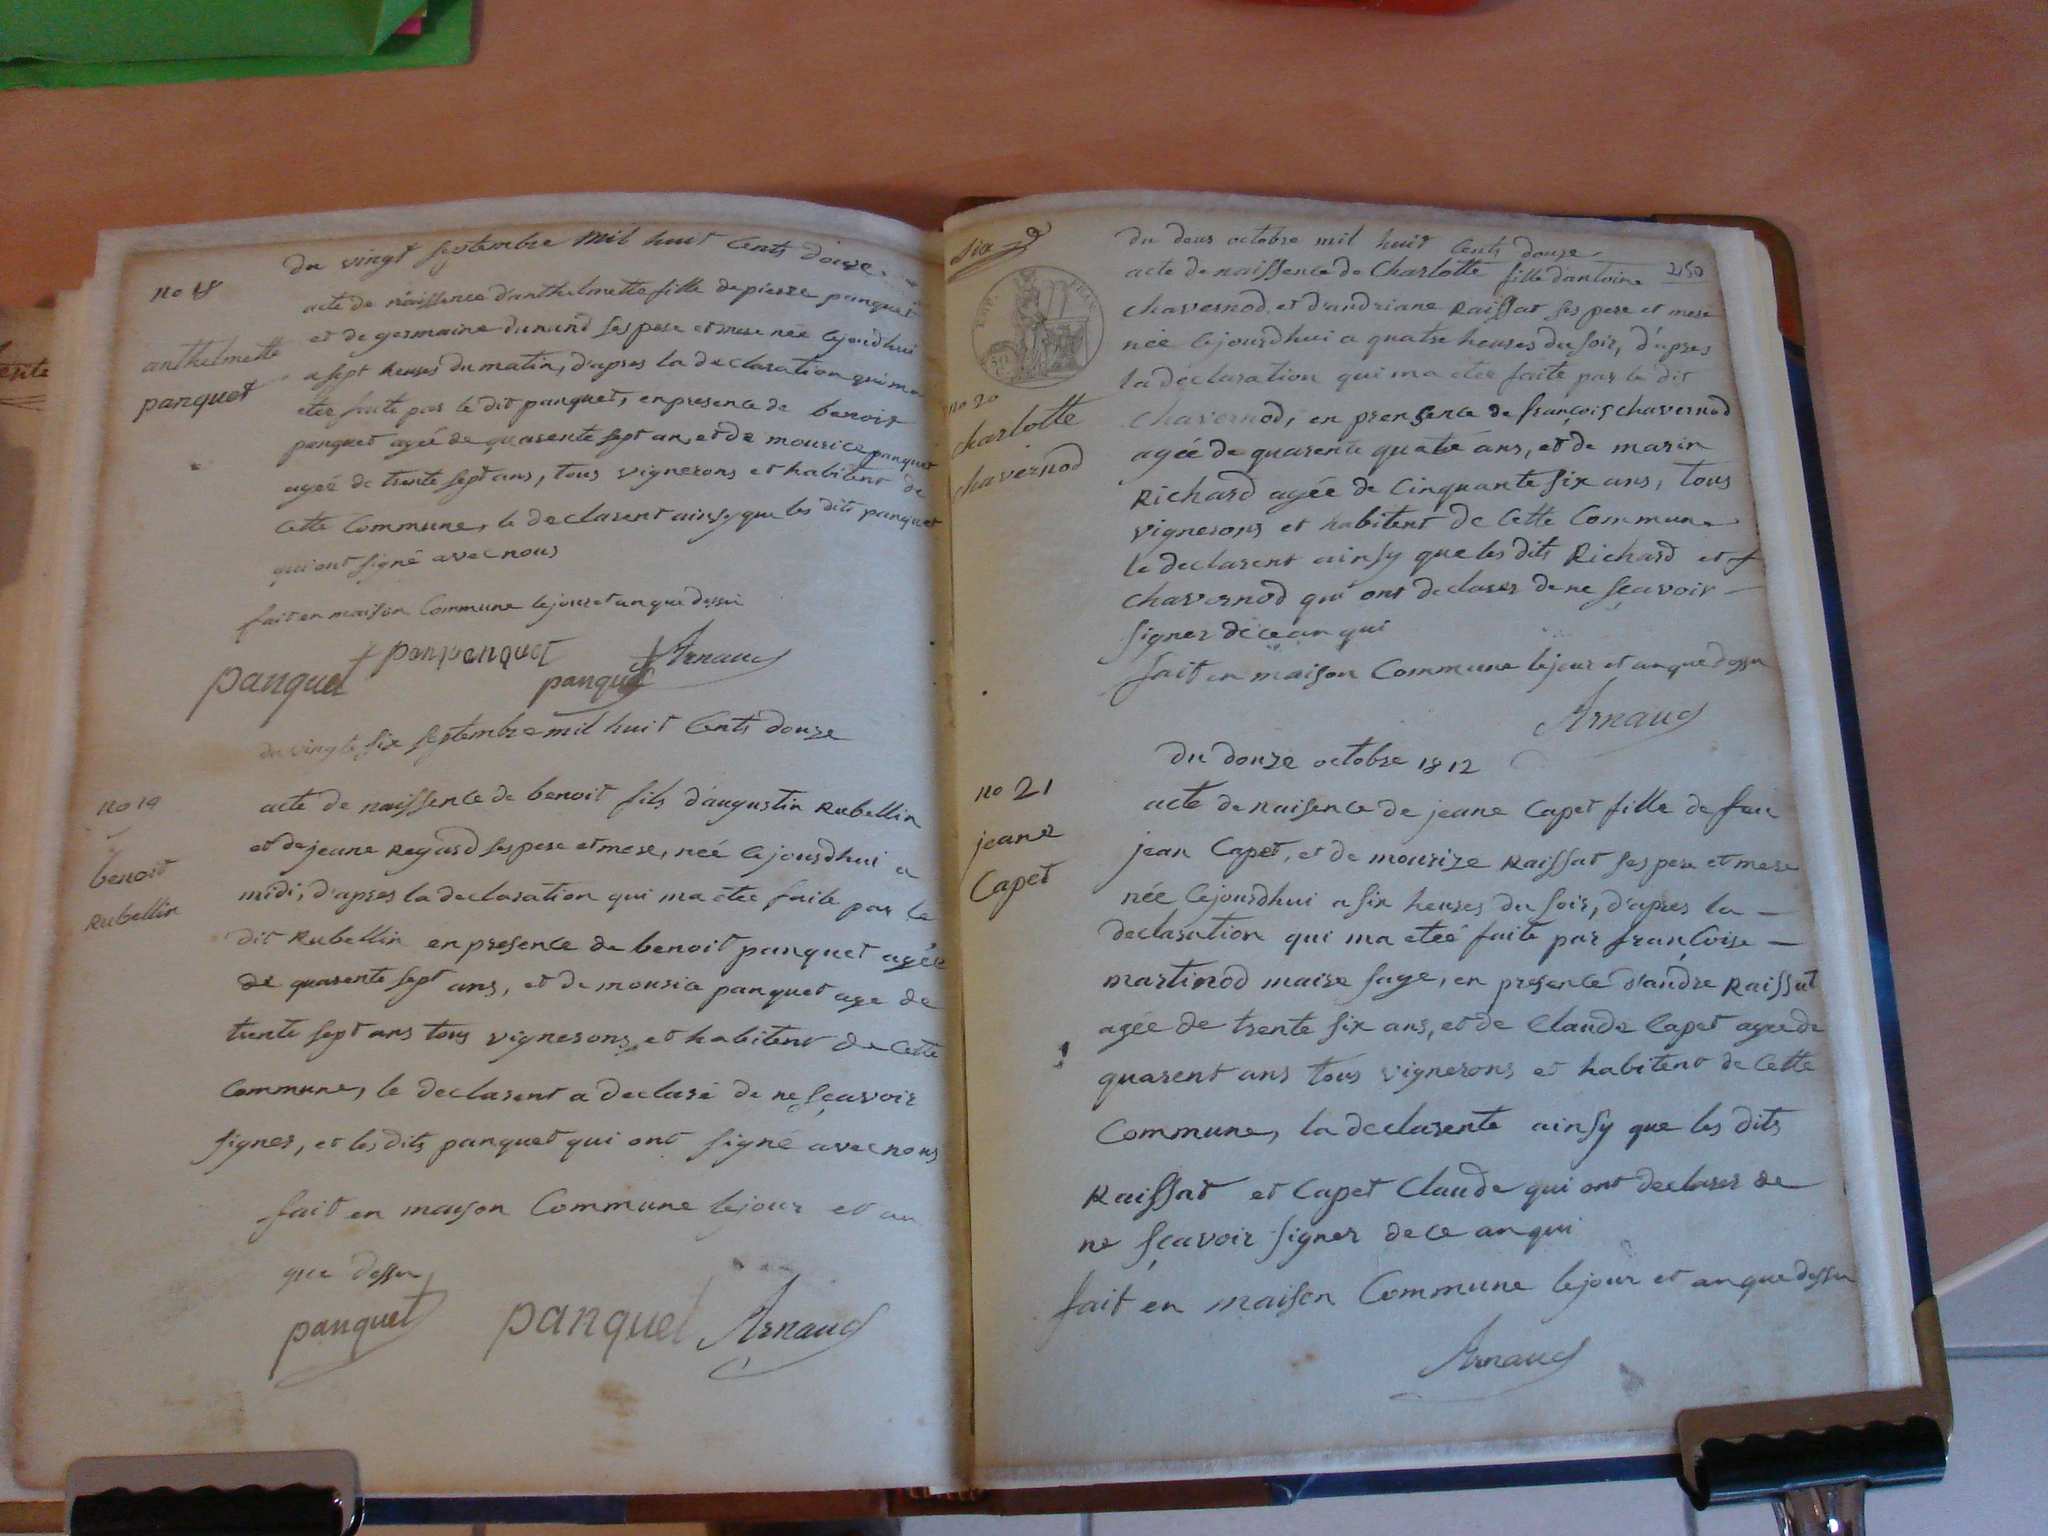 du vingt septembre mil huit Cents douze
no 18
acte de naissence d'anthelmette fille de pierre panquet
et de germaine dunand ses pere et mere née Cejourdhui
anthelmette
panquet
a sept heures du matin, d'apres la declaration qui ma
etee faite par le dit panquet, en presence de benoit
panquet agée de quarente sept an, et de mourice panquet
ageé de trente sept ans, tous vignerons et habitent de
Cette Commune, le declarent ainsy que les dits panquet
qui ont signé avec nous
fait en maison Commune le jour et an que dessu
panquet
panquet Arnaud
du vingte six septembre mil huit Cents douze
no 19
benoit
Rubellin
acte de naissence de benoit fils d'augustin Rubellin
et de jeane Regard ses pere et mere, née Cejourdhui a
midi, d'apres la declaration qui ma etee faite par le
dit Rubellin en presence de benoit panquet agée
de quarente sept ans, et de mourice panquet age de
trente sept ans tous vignerons et habitent de Cette
Commune, le declarent a declaré de ne sçavoir
signer, et les dits panquet qui ont signé avec nous
fait en maison Commune le jour et an
que dessu
panquet panquet Arnaud
du deux octobre mil huit Cents douze
250
EMP. FRAN
no 20
charlotte
chavernod
acte de naissence de Charlotte fille d'antoine
chavernod, et d'andriane Raissat ses pere et mere
née Cejourdhui a quatre heures du soir, d'apres
la declaration qui ma etee faite par le dit
Chavernod, en prensence de françois chavernod
agée de quarente quatre ans, et de marin
Richard agée de Cinquante six ans, tous
vignerons et habitent de Cette Commune
le declarent ainsy que les dits Richard et
chavernod qui ont declarer de ne sçavoir
signer de ce an qui
fait en maison Commune le jour et an que dessu
Arnaud
du douze octobre 1812
no 21
jeane
Capet
acte de naisence de jeane Capet fille de feu
jean Capet, et de mourize Raissat ses pere et mere
née Cejourdhui a six heures du soir, d'apres la
declaration qui ma eteé faite par françoise
martinod maire sage, en presence d'andre Raissat
agée de trente six ans, et de Claude Capet agee de
quarent ans tous vignerons et habitent de Cette
Commune, la declarente ainsy que les dits
Raissat et Capet Claude qui ont declarer de
ne sçavoir signer de ce an qui
fait en maison Commune le jour et an que dessu
Arnaud